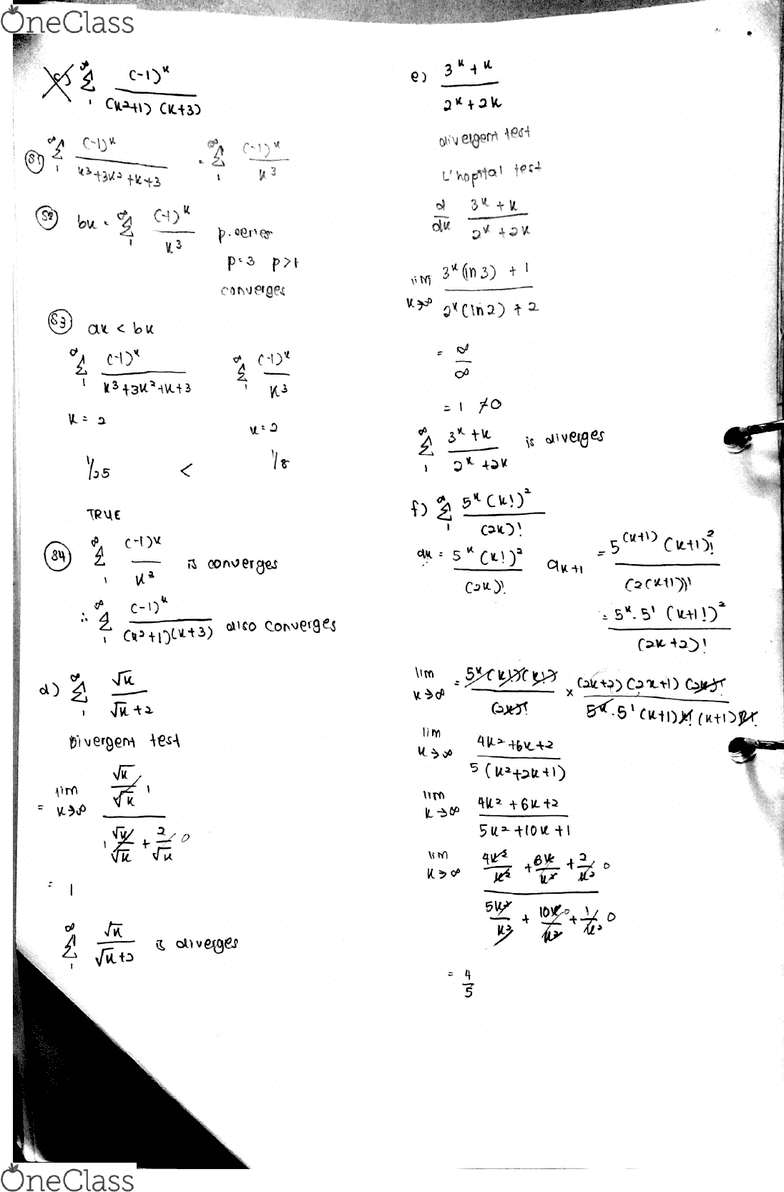 OneClass
c) ∞ Σ 1 (-1)^k / (k²+1) (k+3)
S1 ∞ Σ 1 (-1)^k / k³+3k²+k+3 = ∞ Σ 1 (-1)^k / k³
S2 bk = ∞ Σ 1 (-1)^k / k³ p.series
p=3 p>1
converges
S3 ak < bk
∞ Σ 1 (-1)^k / k³+3k²+k+3 ∞ Σ 1 (-1)^k / k³
k=2 k=2
1/25 < 1/8
TRUE
S4 ∞ Σ 1 (-1)^k / k³ is converges
∴ ∞ Σ 1 (-1)^k / (k²+1)(k+3) also converges
d) ∞ Σ 1 √k / √k+2
Divergent test
= lim k→∞ √k/√k 1 / 1 √k/√k + 2/√k 0
= 1
∞ Σ 1 √k / √k+2 is diverges
e) 3^k+k / 2^k+2k
divergent test
L'hopital test
d/dk 3^k+k / 2^k+2k
lim k→∞ 3^k(ln3) + 1 / 2^k(ln2) + 2
= ∞/∞
= 1 ≠0
∞ Σ 1 3^k+k / 2^k+2k is diverges
f) ∞ Σ 1 5^k(k!)² / (2k)!
ak = 5^k(k!)² / (2k)! ak+1 = 5^(k+1) (k+1)!² / (2(k+1))!
= 5^k·5^1 (k+1!)² / (2k+2)!
lim k→∞ = 5^k(k!)(k!) / (2k)! × (2k+2)(2k+1)(2k)! / 5^k·5^1(k+1)k!(k+1)k!
lim k→∞ 4k²+6k+2 / 5(k²+2k+1)
lim k→∞ 4k²+6k+2 / 5k²+10k+1
lim k→∞ 4k²/k² + 6k/k² + 2/k² 0 / 5k²/k² + 10k/k² 0 + 1/k² 0
= 4/5
OneClass